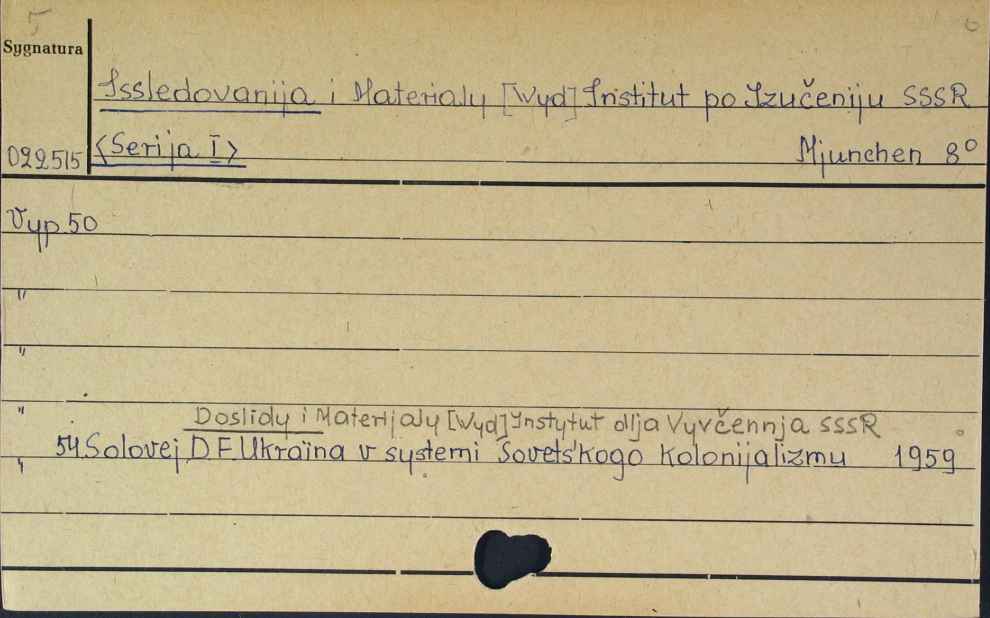 5
6
Sygnatura
Issledovanija i Materialy [Wyd] Institut po Izučeniju SSSR
022515 <Serija I> Mjunchen 8°
Vyp. 50
"
"
" Doslidy i Materijaly [Wyd] Instytut dlja Vyvčennja SSSR
" 54. Solovej D F. Ukraïna v systemi Sovets'kogo kolonijalizmu 1959